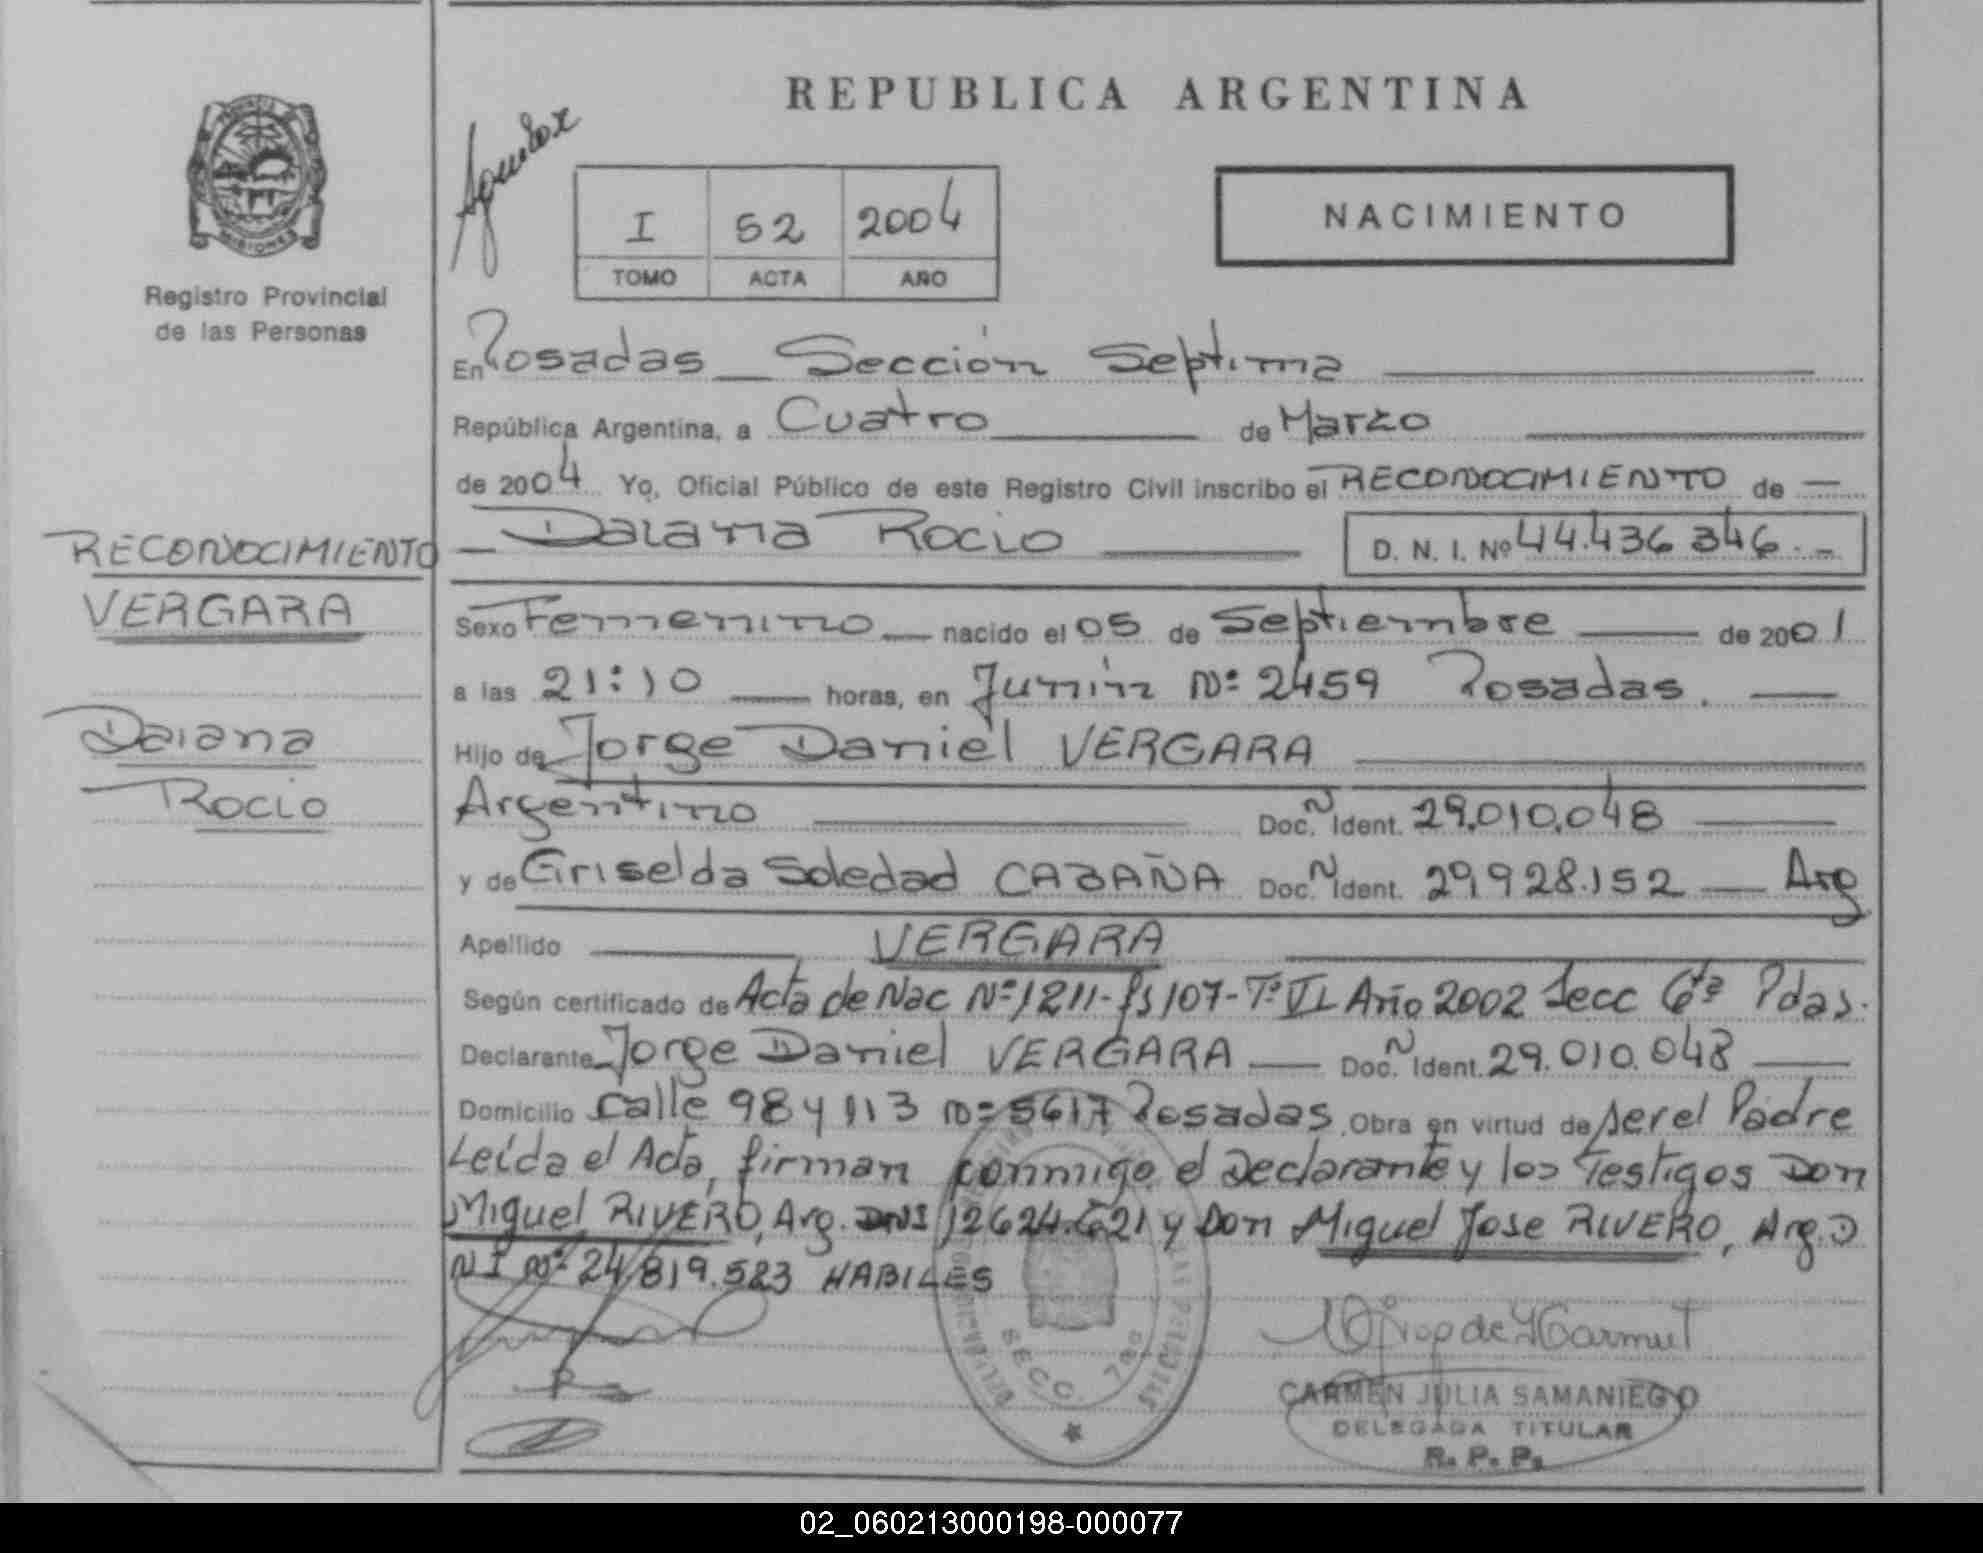 REPUBLICA ARGENTINA
Aguilar
I 52 2004
TOMO ACTA AÑO
NACIMIENTO
MISIONES
Registro Provincial
de las Personas
RECONOCIMIENTO
VERGARA
Daiana
Rocio
En Posadas Sección Septima
República Argentina, a Cuatro de Marzo
de 2004 Yo, Oficial Público de este Registro Civil inscribo el RECONOCIMIENTO de
Daiana Rocio D. N. I. Nº 44.436 346.-
Sexo Femenino nacido el 05 de Septiembre de 2001
a las 21:10 horas, en Junin Nº 2459 Posadas.
Hijo de Jorge Daniel VERGARA
Argentino Doc. N Ident. 29.010.048
y de Griselda Soledad CABAÑA Doc. N Ident. 29.928.152 Arg
Apellido VERGARA
Según certificado de Acta de Nac Nº 1211- fs 107- Tº VI Año 2002 Secc 6ta Pdas.
Declarante Jorge Daniel VERGARA Doc. N Ident. 29.010.048
Domicilio Calle 98 y 113 Nº 5617 Posadas. Obra en virtud de ser el Padre
Leída el Acta, firman conmigo el Declarante y los Testigos Don
Miguel RIVERO, Arg. DNI 12624.621 y Don Miguel Jose RIVERO, Arg. D
NI Nº 24.819.523 HABILES
SECC. 7ma
CARMEN JULIA SAMANIEGO
DELEGADA TITULAR
R. P. P.
02_060213000198-000077